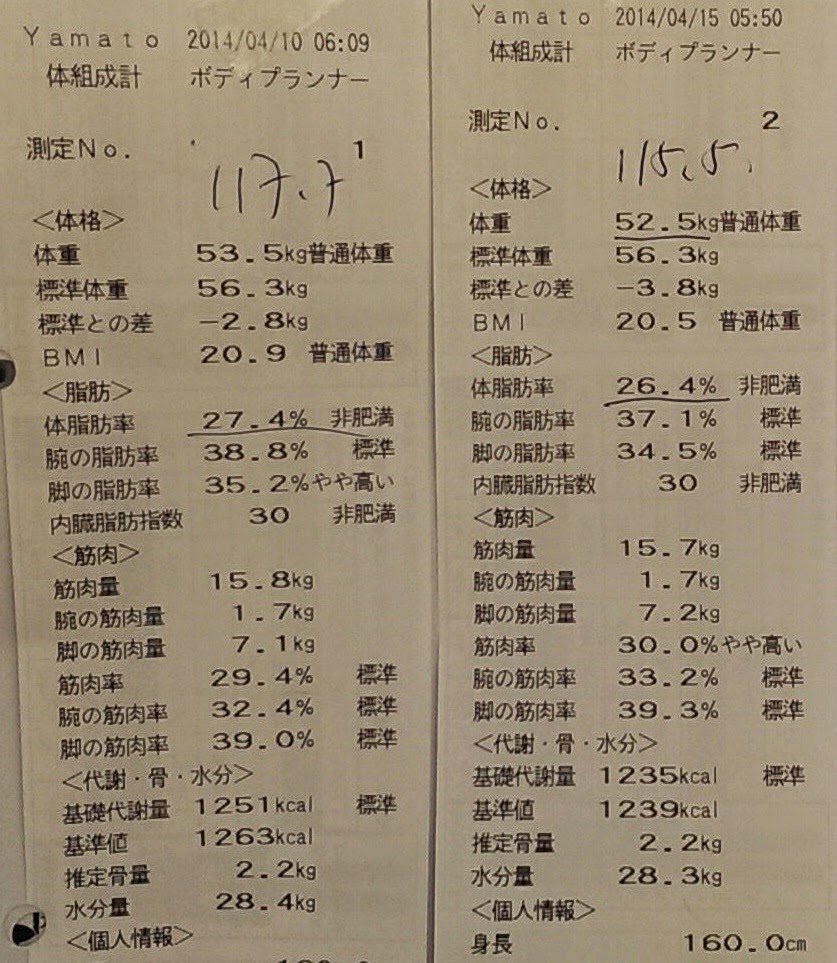 Yamato 2014/04/10 06:09
体組成計 ボディプランナー
測定No. 1
117.7
<体格>
体重 53.5kg普通体重
標準体重 56.3kg
標準との差 -2.8kg
BMI 20.9 普通体重
<脂肪>
体脂肪率 27.4% 非肥満
腕の脂肪率 38.8% 標準
脚の脂肪率 35.2%やや高い
内臓脂肪指数 30 非肥満
<筋肉>
筋肉量 15.8kg
腕の筋肉量 1.7kg
脚の筋肉量 7.1kg
筋肉率 29.4% 標準
腕の筋肉率 32.4% 標準
脚の筋肉率 39.0% 標準
<代謝・骨・水分>
基礎代謝量 1251kcal 標準
基準値 1263kcal
推定骨量 2.2kg
水分量 28.4kg
<個人情報>
Yamato 2014/04/15 05:50
体組成計 ボディプランナー
測定No. 2
115.5.
<体格>
体重 52.5kg普通体重
標準体重 56.3kg
標準との差 -3.8kg
BMI 20.5 普通体重
<脂肪>
体脂肪率 26.4% 非肥満
腕の脂肪率 37.1% 標準
脚の脂肪率 34.5% 標準
内臓脂肪指数 30 非肥満
<筋肉>
筋肉量 15.7kg
腕の筋肉量 1.7kg
脚の筋肉量 7.2kg
筋肉率 30.0%やや高い
腕の筋肉率 33.2% 標準
脚の筋肉率 39.3% 標準
<代謝・骨・水分>
基礎代謝量 1235kcal 標準
基準値 1239kcal
推定骨量 2.2kg
水分量 28.3kg
<個人情報>
身長 160.0cm